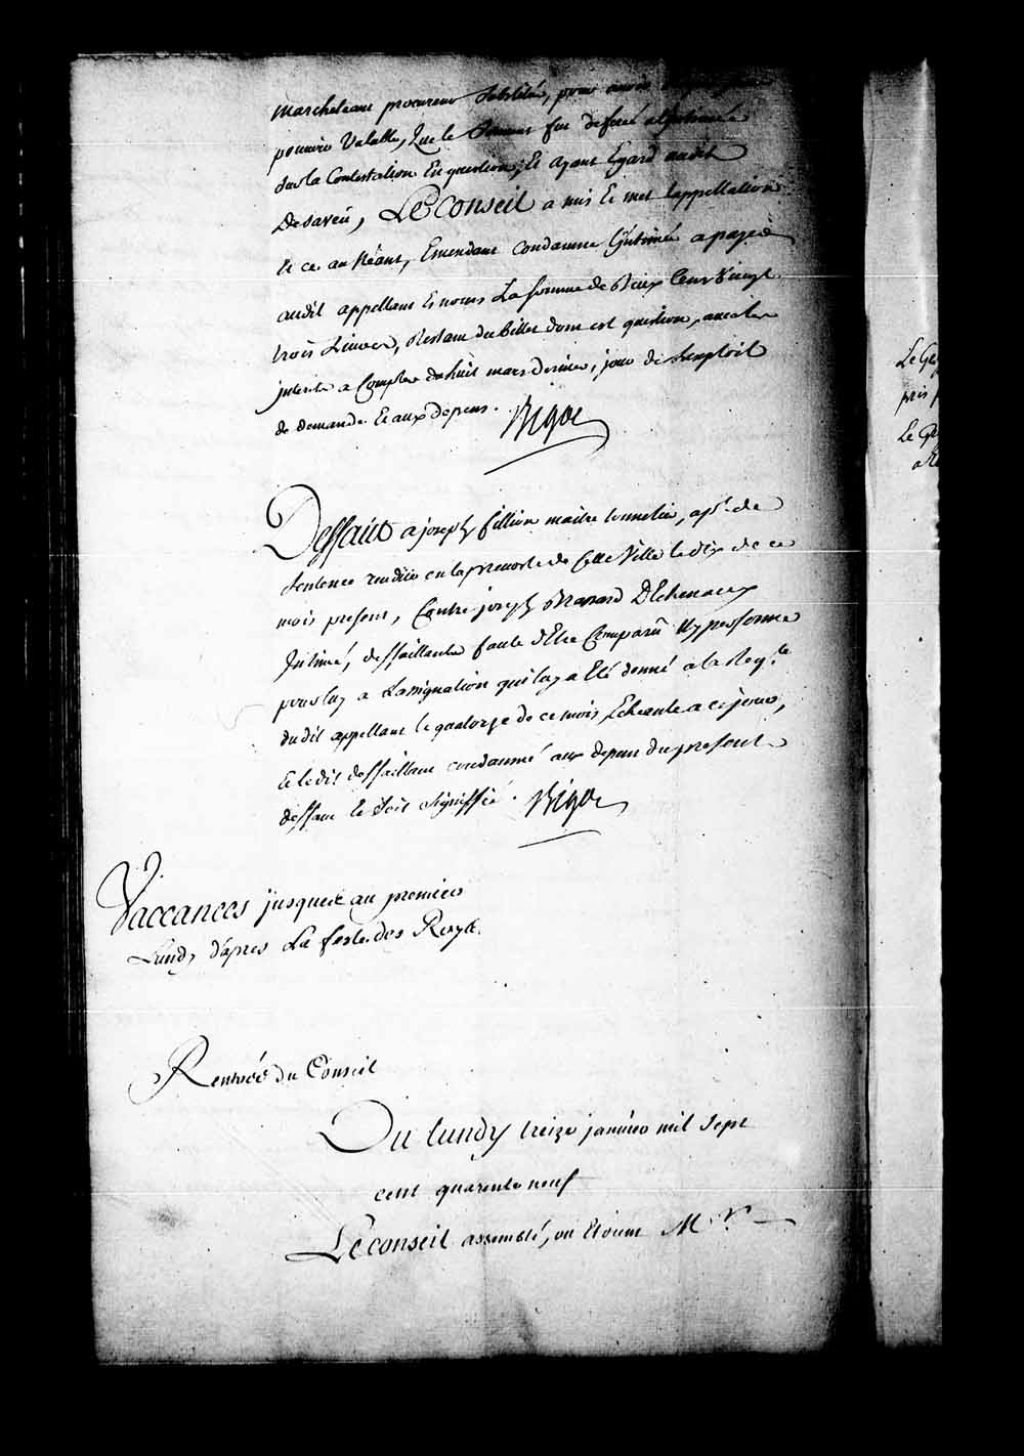 Marcheteau procureur substitué, pour avoir
pouvoir valable, que le serment fut deferé a l'intimée
sur la Contestation En question, Et ayant Egard audit
Desaveu, Le Conseil a mis Et met l'appellation
Et ce au Neant, Emendant condamne l'intimé a payer
audit appellant Es noms La somme de Deux Cent vingt
trois Livres, Restant du billet dont est question, avec les
interets a Compter du huit mars dernier, jour de l'exploit
de demande Et aux depens. Bigot
Deffaut a joseph fillion maitre tonnelier, apt. de
sentence rendüe en la prevosté de Cette Ville le dix de ce
mois present, Contre joseph Brassard DEchenaux
Intimé, deffaillant faute d'Etre Comparu Ny personne
pour luy a L'assignation qui luy a Eté donné a la Reqte.
dudit appellant le quatorze de ce mois, Echeante a ce jour,
Et le dit deffaillant condamné aux depens du present
deffaut Et soit signiffié. Bigot
Vaccances jusques au premier
Lundy d'apres La feste des Roys.
Rentrée du Conseil
Du lundy treize janvier mil sept
cent quarente neuf
Le Conseil assemblé, ou Etoient Mrs.
Le
pris
Le